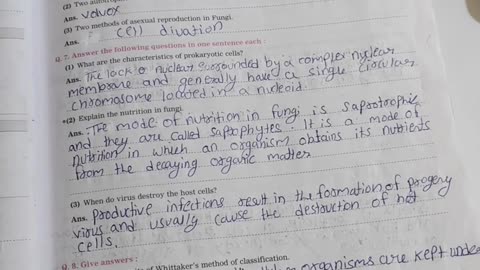 (2) Two autotrop
Ans. volvox
(3) Two methods of asexual reproduction in Fungi.
Ans. cell divation
Q. 7. Answer the following questions in one sentence each :
(1) What are the characteristics of prokaryotic cells?
Ans. The lack a nuclear surrounded by a complex nuclear
membrane and generally have a single circular
chromosome located in a nucleoid.
*(2) Explain the nutrition in fungi.
Ans. The mode of nutrition in fungi is saprotrophic
and they are called saprophytes. It is a mode of
nutrition in which an organism obtains its nutrients
from the decaying organic matter
(3) When do virus destroy the host cells?
Ans. productive infections result in the formation of progeny
virous and usually cause the destruction of hot
cells.
Q. 8. Give answers :
of Whittaker's method of classification.
organisms are kept unde